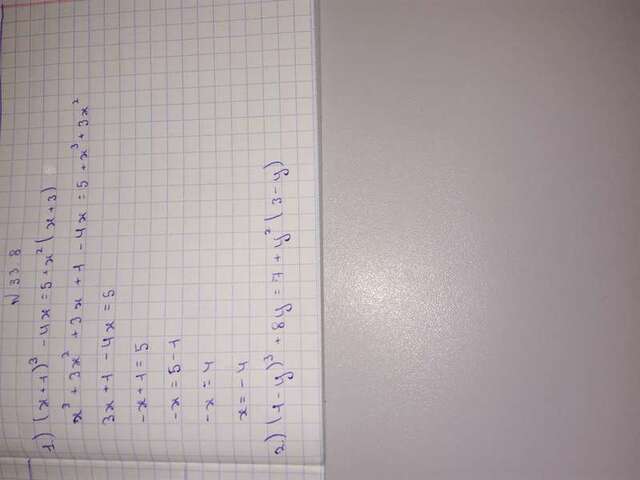 N 338
1) (x+1)³ - 4x = 5 + x² (x+3)
x³ + 3x² + 3x + 1 - 4x = 5 + x³ + 3x²
3x + 1 - 4x = 5
-x + 1 = 5
-x = 5 - 1
-x = 4
x = -4
2) (1-y)³ + 8y = 7 + y² (3-y)